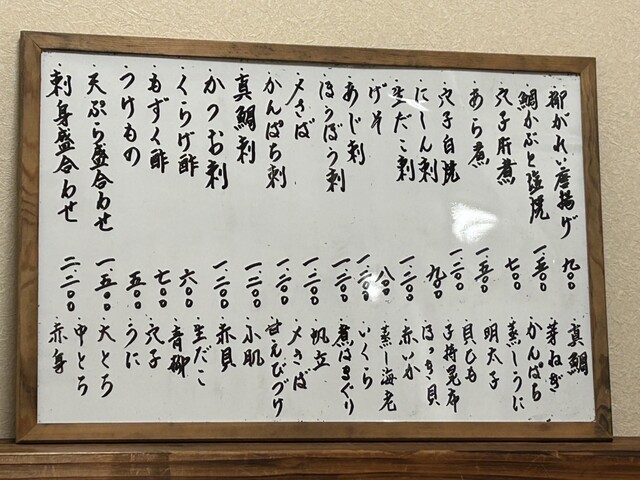 柳がれい唐揚げ 九〇〇
鯛かぶと塩焼 一.五〇〇
穴子肝煮 七〇〇
あら煮 一.五〇〇
穴子白焼 一.二〇〇
にしん刺 九〇〇
生だこ刺 一.二〇〇
げそ 八〇〇
あじ刺 一.二〇〇
ほうぼう刺 一.二〇〇
〆さば 一.二〇〇
かんぱち刺 一.二〇〇
真鯛刺 一.二〇〇
かつお刺 一.二〇〇
くらげ酢 六〇〇
もずく酢 七〇〇
つけもの 五〇〇
天ぷら盛合わせ 一.五〇〇
刺身盛合わせ 二.二〇〇
真鯛
芽ねぎ
かんぱち
蒸しうに
明太子
貝ひも
子持昆布
ほっき貝
赤いか
蒸し海老
いくら
煮はまぐり
帆立
〆さば
甘えびづけ
小肌
赤貝
生だこ
青柳
穴子
うに
大とろ
中とろ
赤身